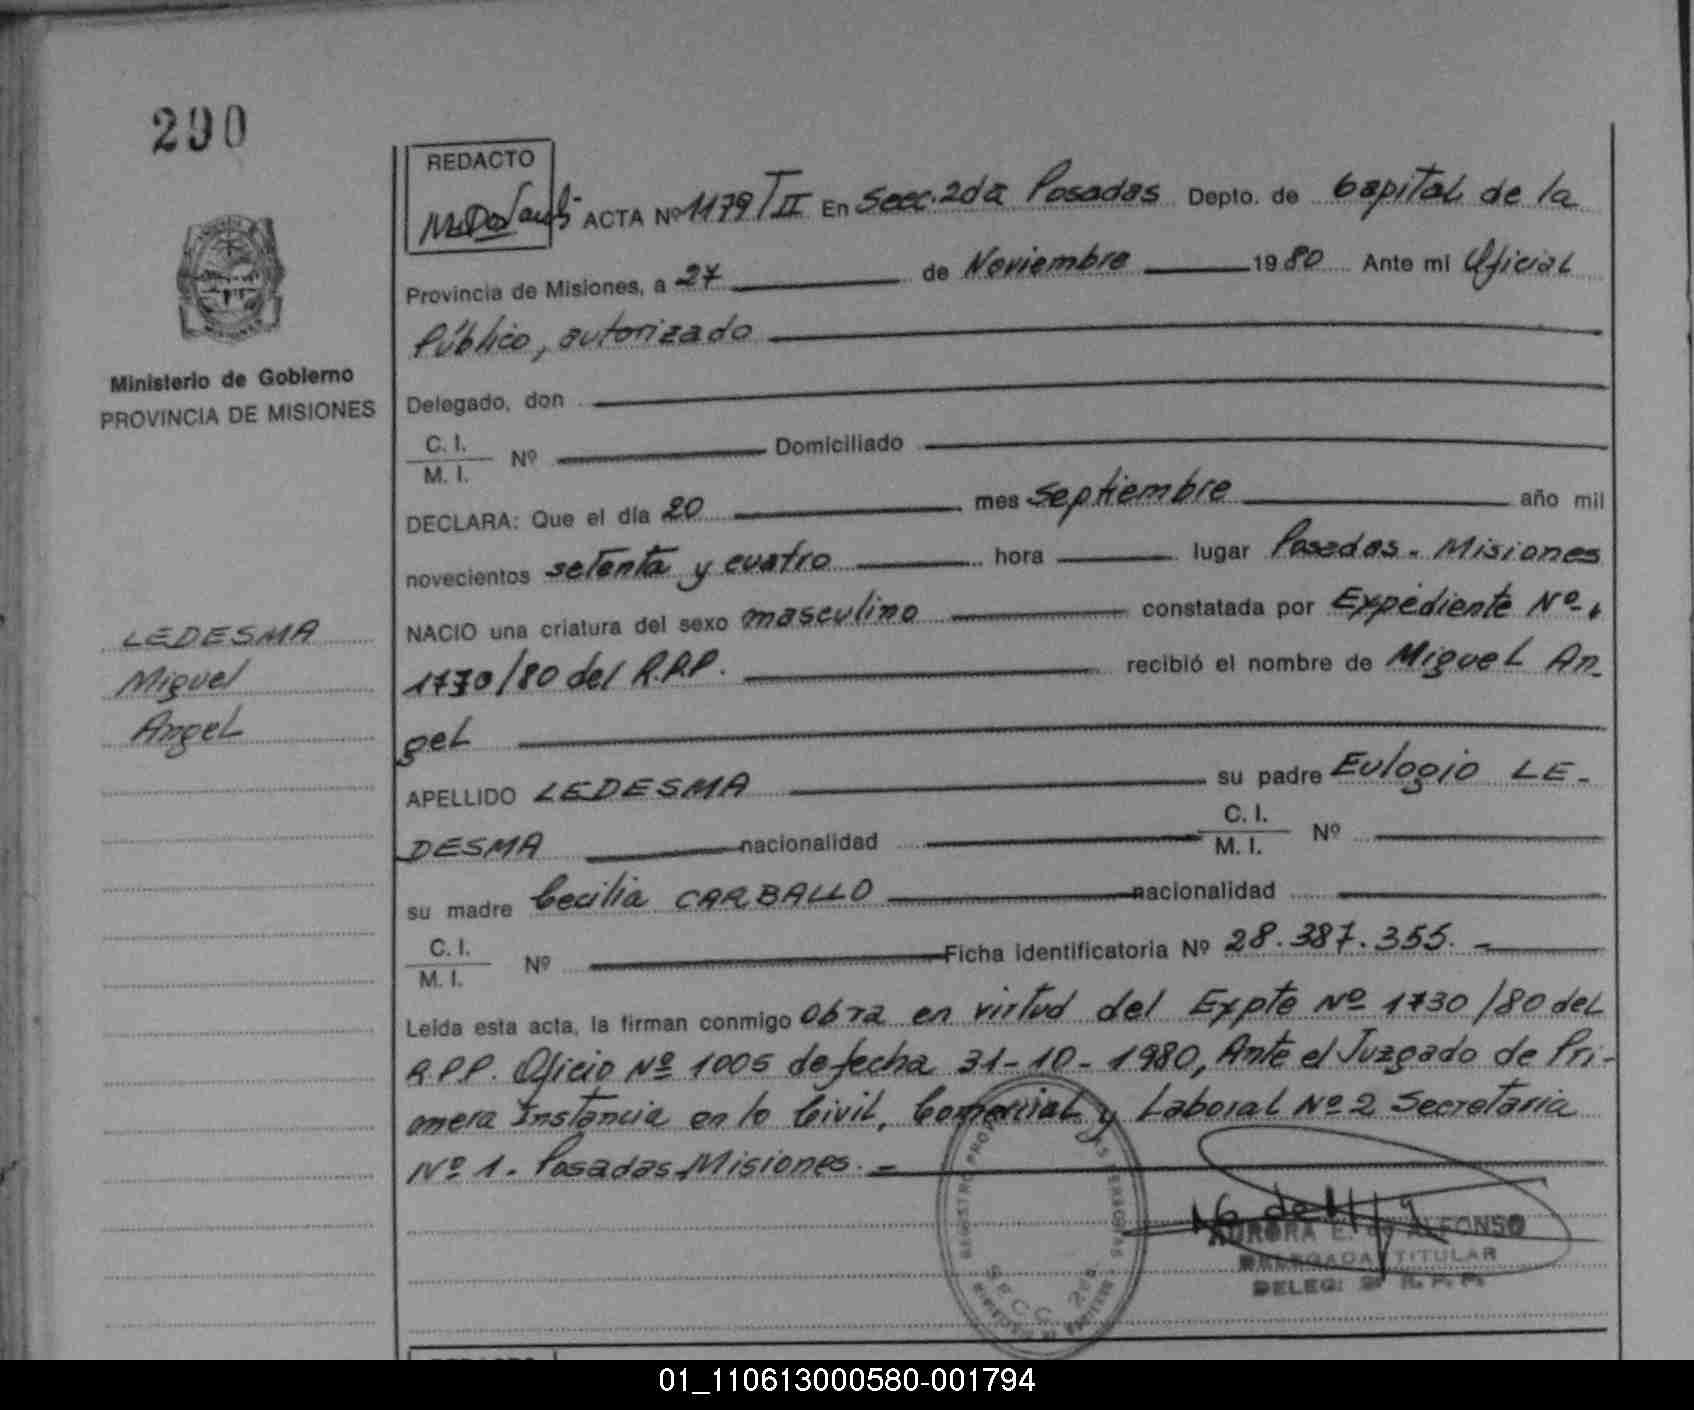 290
REDACTO
ACTA Nº 1179 T II En Secc. 2da Posadas Depto. de Capital de la
Provincia de Misiones, a 27 de Noviembre 1980 Ante mi Oficial
Público, autorizado
Ministerio de Gobierno
PROVINCIA DE MISIONES
Delegado, don
C. I.
M. I. Nº Domiciliado
DECLARA: Que el día 20 mes septiembre año mil
novecientos setenta y cuatro hora lugar Posadas - Misiones
LEDESMA
Miguel
Angel
NACIO una criatura del sexo masculino constatada por Expediente Nº
1730/80 del R.P.P. recibió el nombre de Miguel An-
gel
APELLIDO LEDESMA su padre Eulogio LE-
DESMA nacionalidad C. I. M. I. Nº
su madre Cecilia CARBALLO nacionalidad
C. I.
M. I. Nº Ficha identificatoria Nº 28.387.355.-
Leída esta acta, la firman conmigo Obra en virtud del Expte Nº 1730/80 del
R.P.P. Oficio Nº 1005 de fecha 31-10-1980, Ante el Juzgado de Pri-
mera Instancia en lo Civil, Comercial y Laboral Nº 2 Secretaria
Nº 1. Posadas, Misiones.-
AURORA E. de ALFONSO
DELEGADA TITULAR
DELEG. 2ª R. P. P.
SECC. 2da
01_110613000580-001794